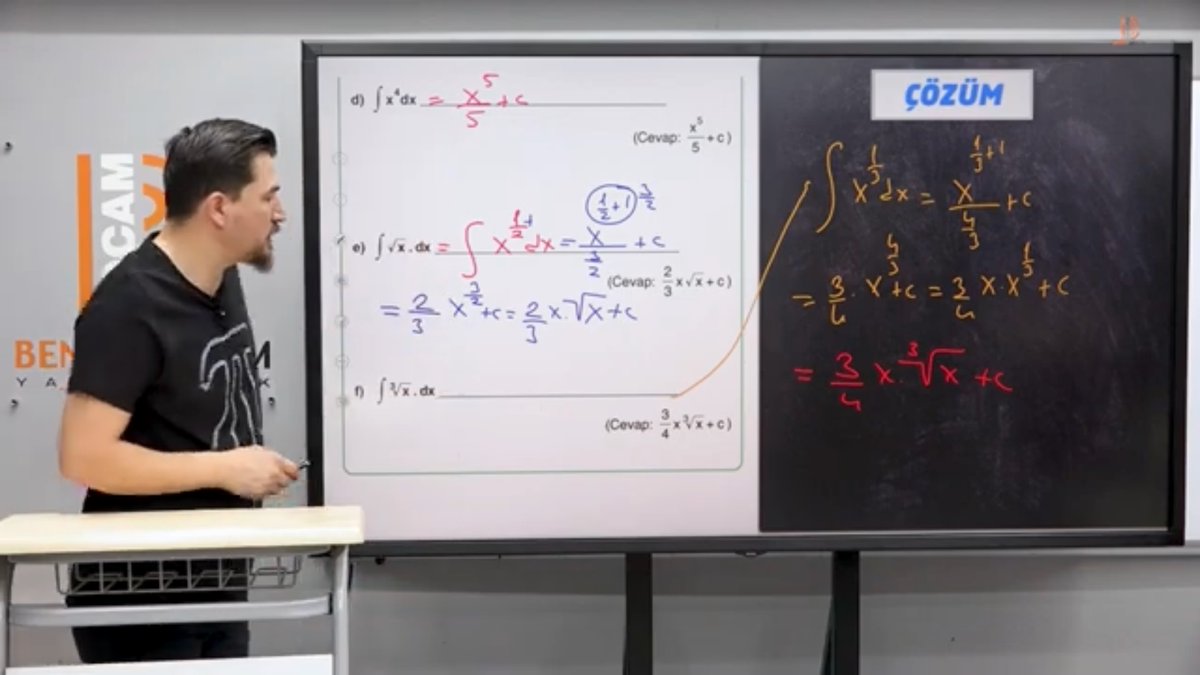 d) ∫ x⁴dx = x⁵/5 + c
(Cevap: x⁵/5 + c)
e) ∫ √x . dx = ∫ x^(1/2) dx = x^(1/2+1)/(3/2) + c
3/2
(Cevap: 2/3 x√x + c)
= 2/3 x^(3/2) + c = 2/3 x.√x + c
f) ∫ ³√x . dx
(Cevap: 3/4 x ³√x + c)
ÇÖZÜM
∫ x^(1/3) dx = x^(1/3+1)/(4/3) + c
= 3/4 . x^(4/3) + c = 3/4 x.x^(1/3) + c
= 3/4 x.³√x + c
BEN
CAM